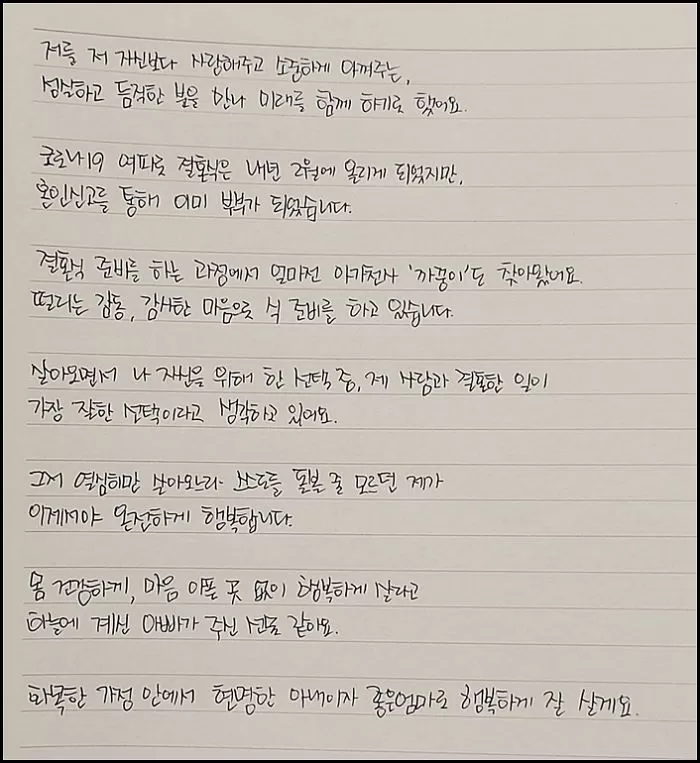 저를 저 자신보다 사랑해주고 소중하게 아껴주는,
성실하고 듬직한 분을 만나 미래를 함께 하기로 했어요.
코로나19 여파로 결혼식은 내년 2월에 올리게 되었지만,
혼인신고를 통해 이미 부부가 되었습니다.
결혼식 준비를 하는 과정에서 얼마전 아가천사 '까꿍이'도 찾아왔어요.
떨리는 감동, 감사한 마음으로 식 준비를 하고 있습니다.
살아오면서 나 자신을 위해 한 선택 중, 제 사람과 결혼한 일이
가장 잘한 선택이라고 생각하고 있어요.
그저 열심히만 살아오느라 스스로를 돌볼 줄 모르던 제가
이제서야 온전하게 행복합니다.
몸 건강하게, 마음 아플 곳 없이 행복하게 살라고
하늘에 계신 아빠가 주신 선물 같아요.
화목한 가정 안에서 현명한 아내이자 좋은엄마로 행복하게 잘 살게요.